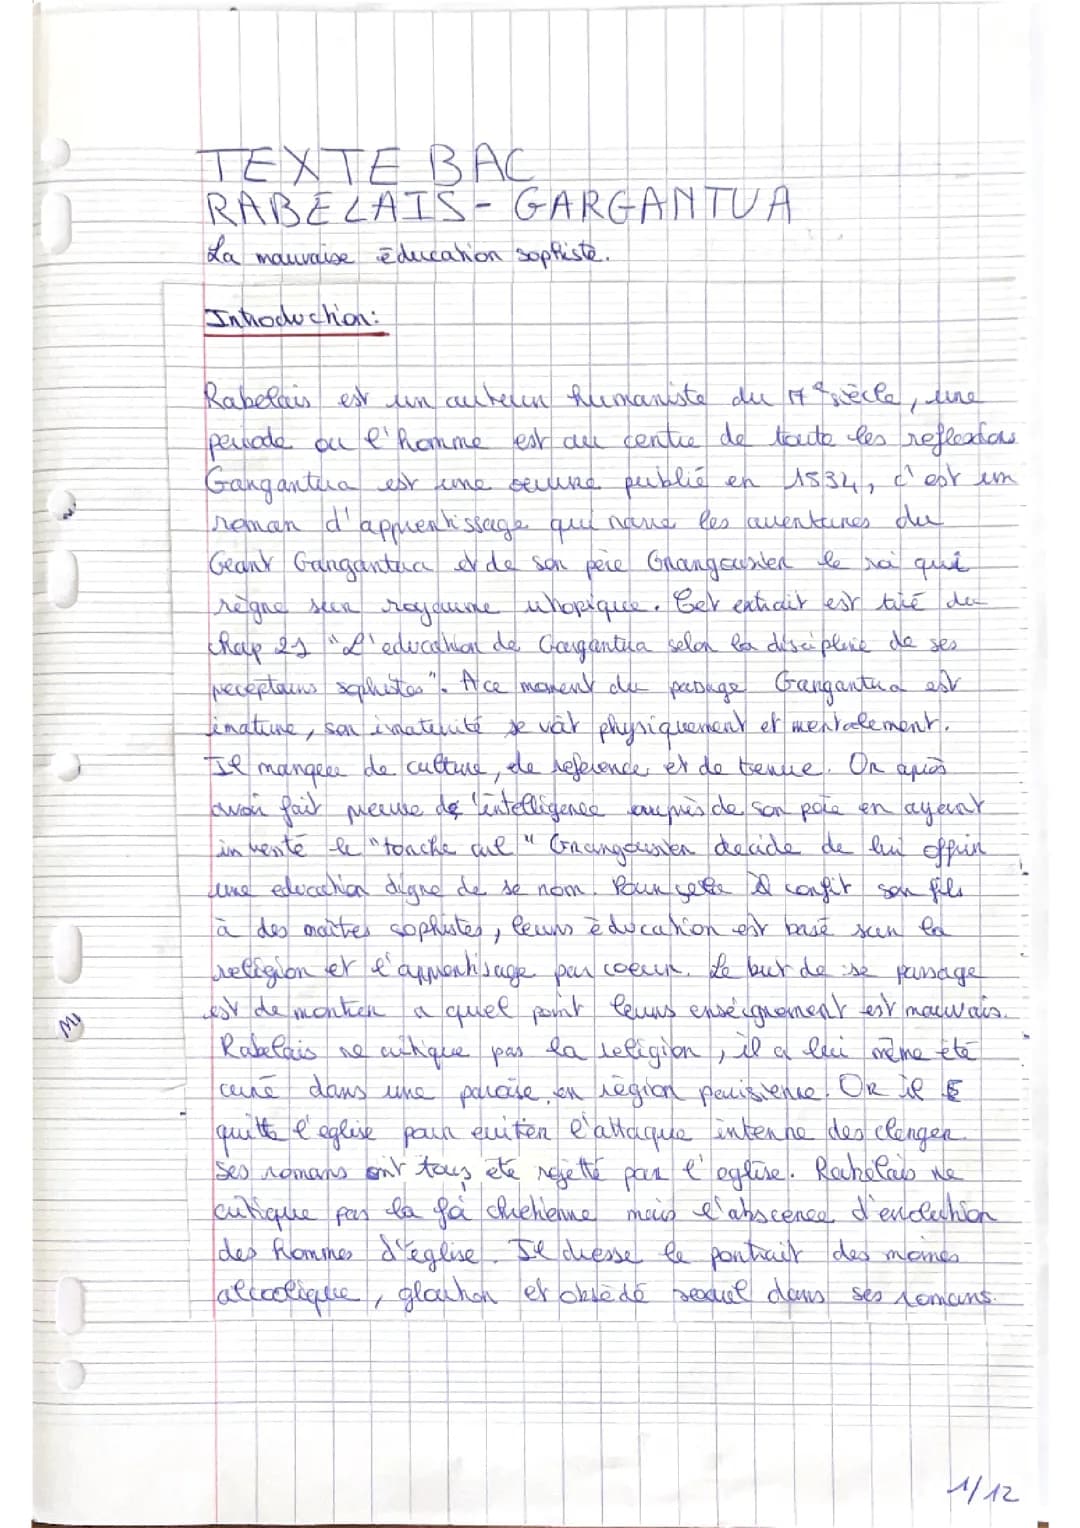 TEXTE BAC
RABELAIS - GARGANTUA
La mauvaise éducation sophiste.
Introduction:
Rabelais est un auteur humaniste du 17e siècle, une
periode ou l'homme est au centre de toute les reflexions
Gargantua est une oeuvre publié en 1534, c'est un
roman d'apprentissage qui narre les aventures du
Geant Gargantua et de son père Grangousier le roi qui
règne sur royaume utopique. Cet extrait est tiré du
chap 21 "L'education de Gargantua selon la discipline de ses
precepteurs sophistes". A ce moment du passage Gargantua est
imature, son imaturité se voit physiquement et mentalement.
Il manque de culture, de reference et de tenue. Or après
avoir fait preuve de l'intelligence auprès de son père en ayant
inventé le "torche cul" Grangousier decide de lui offrir
une education digne de se nom. Pour cela il confit son fils
à des maîtres sophistes, leurs éducation est basé sur la
religion et l'apprentisage par coeur. Le but de se passage
est de montrer a quel point leurs enseignement est mauvais.
Rabelais ne critique pas la religion, il a lui même été
curé dans une paroise en région parisienne. Or il
quitte l'église pour eviter l'attaque interne des clerger.
Ses romans ont tous été rejetté par l'eglise. Rabelais ne
critique pas la foi chretienne mais l'abscence d'evolution
des hommes d'église. Il dresse le portrait des moines
alcoolique, glouton et obsédé sexuel dans ses romans.
1/12